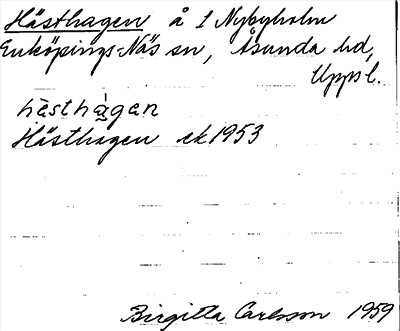 Hästhagen å 1 Nybyholm
Enköpings-Näs sn, Åsunda hd,
Uppsl.
hàsthàgen
Hästhagen ek 1953
Birgitta Carlsson 1959